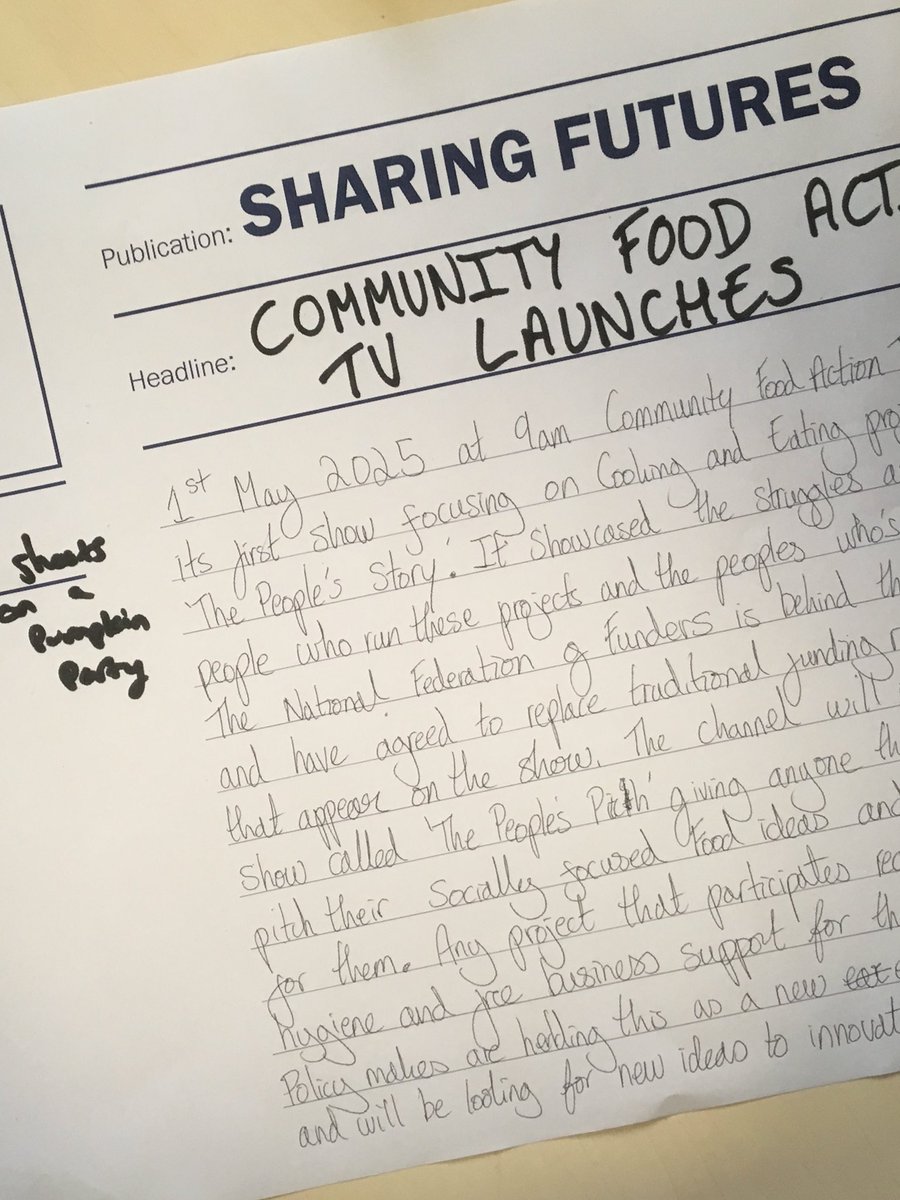 Publication: SHARING FUTURES
Headline: COMMUNITY FOOD ACT
TV LAUNCHES
1st May 2025 at 9am Community Food Action
its first show focusing on Cooking and Eating
'The People's Story'. It showcased the struggles
people who run these projects and the peoples who's
The National Federation of Funders is behind
and have agreed to replace traditional funding
that appear on the show. The channel will
show called 'The People's Pitch' giving anyone
pitch their Socially focused Food ideas and
for them. Any project that participates
hygiene and free business support for
Policy makes are heralding this as a new
and will be looking for new ideas to
on a
Pumpkin
Party